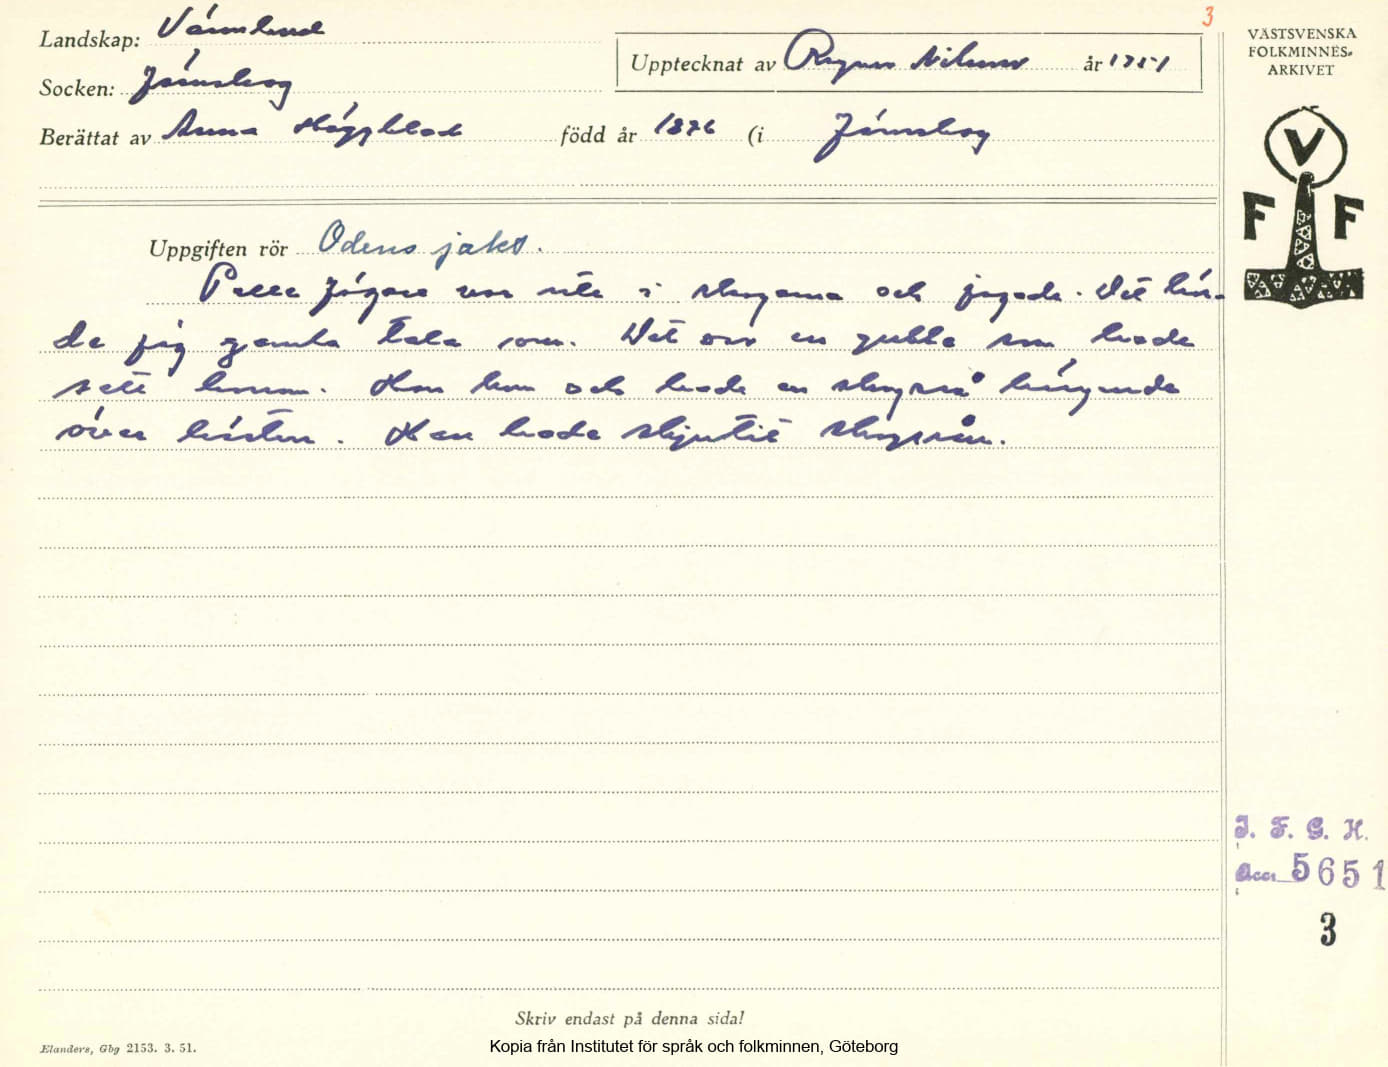 3
Landskap: Värmland
VÄSTSVENSKA
FOLKMINNES-
ARKIVET
Upptecknat av Ragnar Nilsson år 1951
Socken: Järnskog
Berättat av Anna Häggblad född år 1876 (i Järnskog
V
F F
Uppgiften rör Odens jakt.
Pelle Jägare var ute i skogarna och jagade. Det hör-
de jag gamla tala om. Det var en gubbe som hade
sett honom. Han kom och hade en skogsrå hängande
över hästen. Han hade skjutit skogsrån.
I. F. G. H.
Acc. 5651
3
Skriv endast på denna sida!
Elanders, Gbg 2153. 3. 51.
Kopia från Institutet för språk och folkminnen, Göteborg